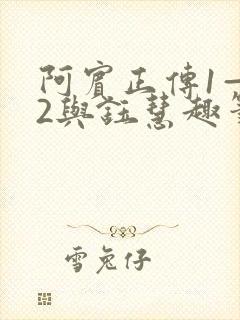 阿賓正傳1—
2與鈺慧趣事
雪兔仔